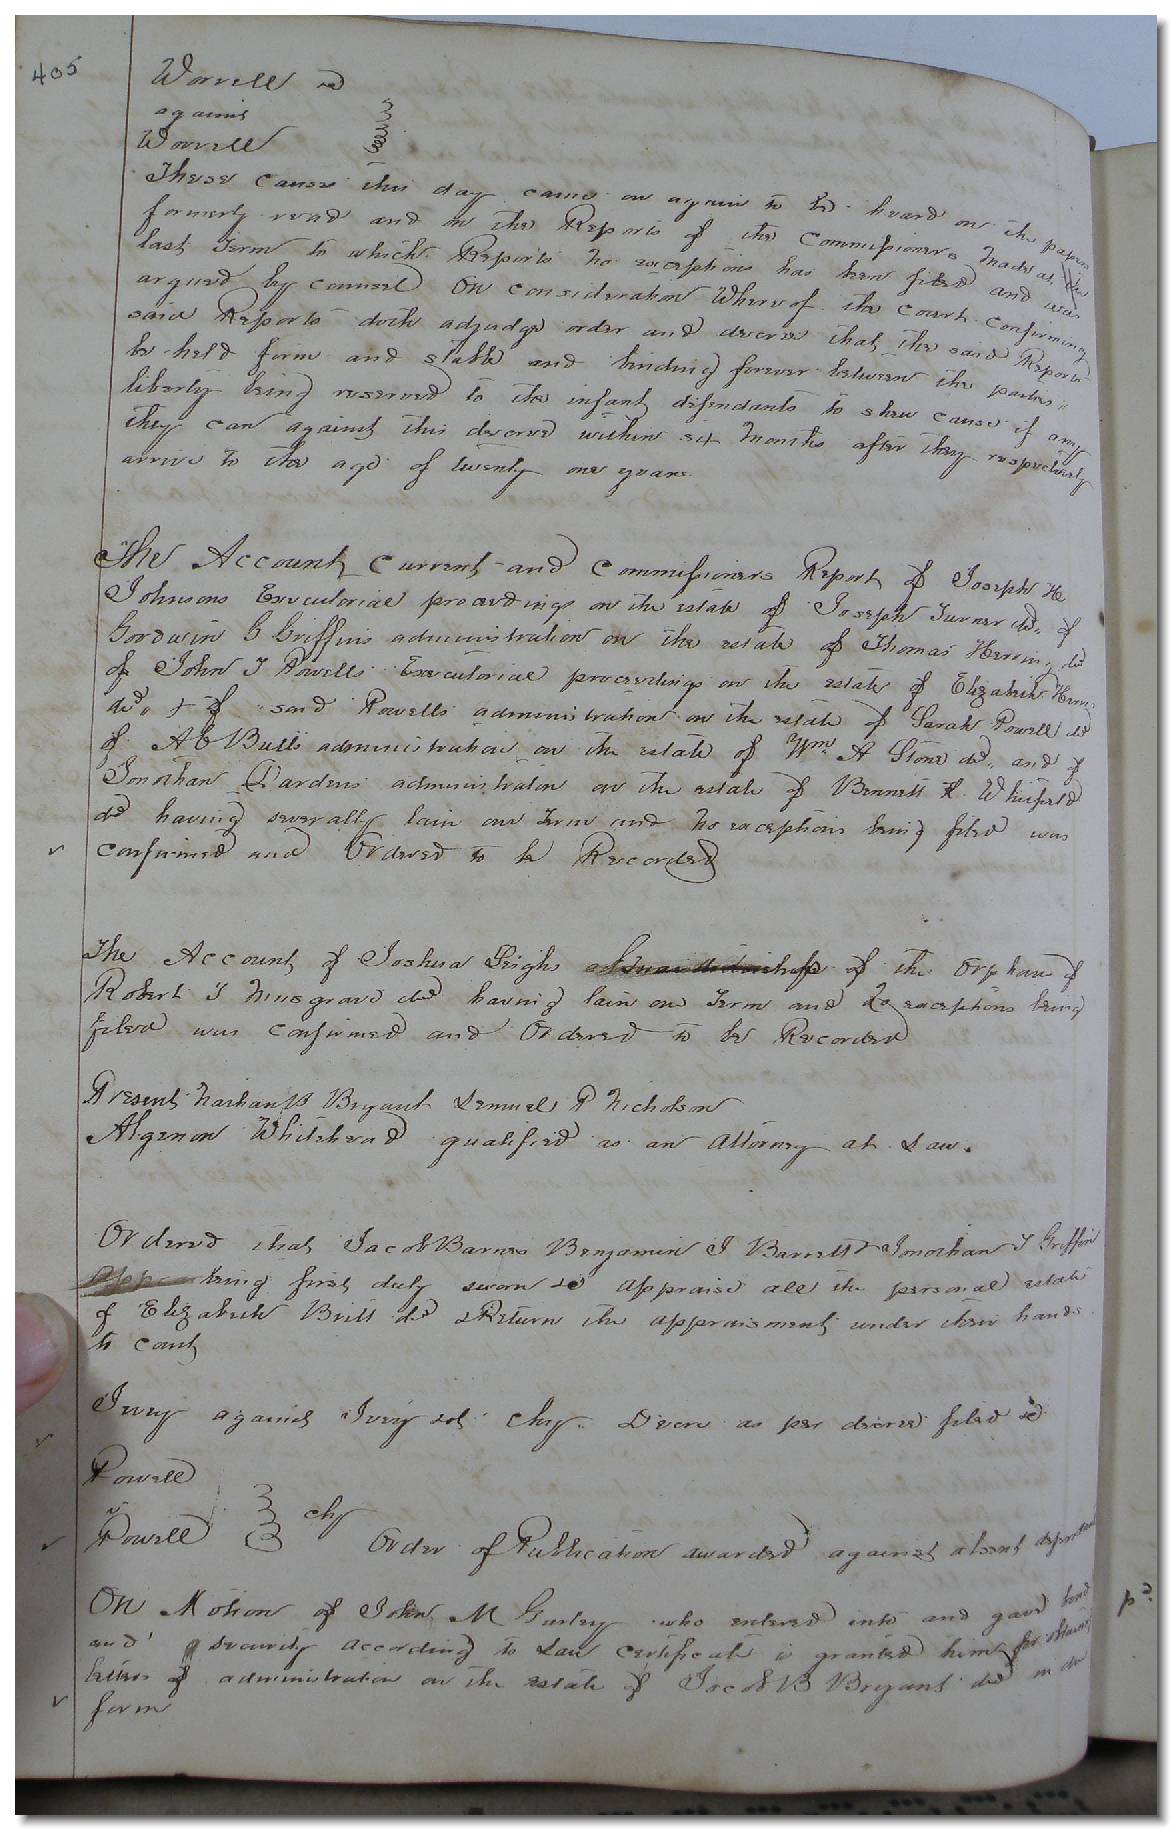 405
Worrell &c
against
Worrell
These cause this day came on again to be heard on the papers
formerly read and on the Reports of the Commissioners made at the
last Term to which Reports no exceptions has been filed and was
argued by counsel On consideration Whereof the Court confirming
said Reports doth adjudge order and decree that the said Reports
be held form and stable and binding forever between the parties
liberty being reserved to the infant defendants to shew cause if any
they can against this decree within six months after they respectively
arrive to the age of twenty one years
The Account Current and Commissioners Report of Joseph H
Johnsons Executorial proceedings on the estate of Joseph Turner decd. of
Goodwin G Griffins administration on the estate of Thomas Herring decd
of John T Powells Executorial proceedings on the estate of Elizabeth
decd. & of said Powells administration on the estate of Sarah Powell decd
of A C Butts administration on the estate of Wm A Stone decd. and of
Jonathan Dardens administration on the estate of Bennett Whitfield
decd having severally lain one Term and no exceptions being filed was
confirmed and Ordered to be Recorded
The Account of Joshua Leighs of the Orphans of
Robert T Musgrave decd having lain one Term and no exceptions being
filed was confirmed and Ordered to be Recorded
Present Nathan B Bryant Lemuel P Nicholson
Algenon Whitehead qualified as an attorney at Law.
Ordered that Jacob Barnes Benjamin J Barrett & Jonathan T Griffin
being first duly sworn do appraise all the personal estate
of Elizabeth Britt decd & Return the appraisment under their hands
to Court
Ivey against Ivey Chy. Decree as per decree filed
Powell
vs
Powell
chy
Order of Publication awarded against absent defendant
On Motion of John M Gurley who entered into and gave bond
pd.
and security according to Law certificate is granted him for obtaining
letters of administration on the estate of Jacob B Bryant decd in due
form